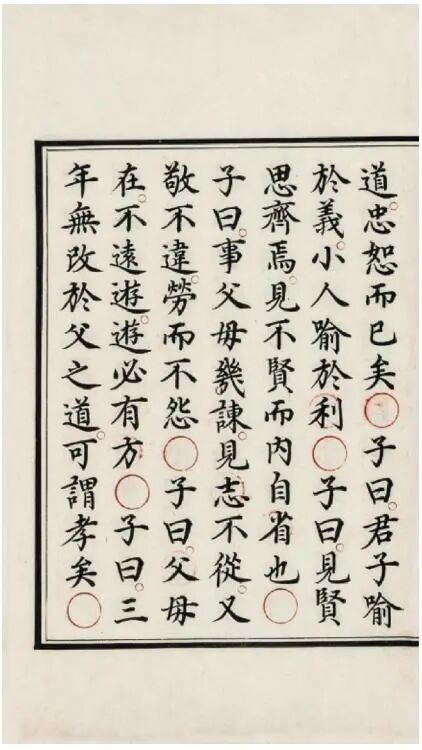 道忠恕而已矣○子曰君子喻
於義小人喻於利○子曰見賢
思齊焉見不賢而内自省也○
子曰事父母幾諫見志不從又
敬不違勞而不怨○子曰父母
在不遠遊遊必有方○子曰三
年無改於父之道可謂孝矣○